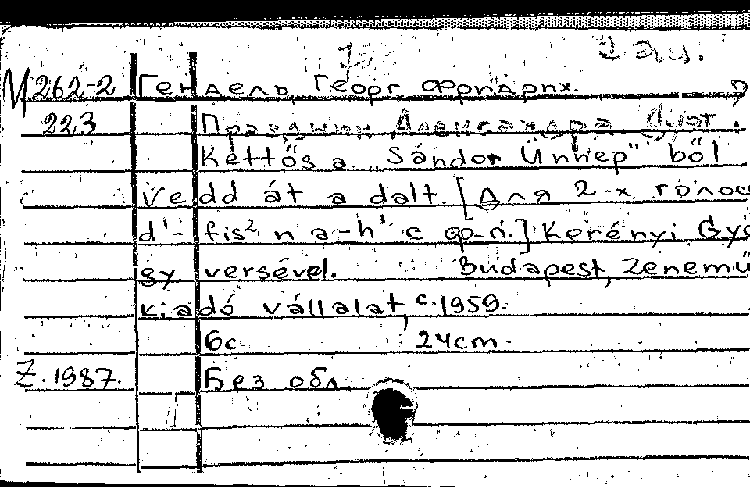 2 экз.
М 262-2 Гендель, Георг Фридрих.
223 Праздник Александра. Дуэт.
Kettős a „Sándor Ünnep" ből
Vedd át a dalt. [Для 2-х голос
d¹- fis² и a-h¹ с ф-п.] Kerényi Gyö
gy versével. Budapest, Zenemű
kiadó vállalat, c. 1959.
6с 24cm.
Z. 1987. Без обл.